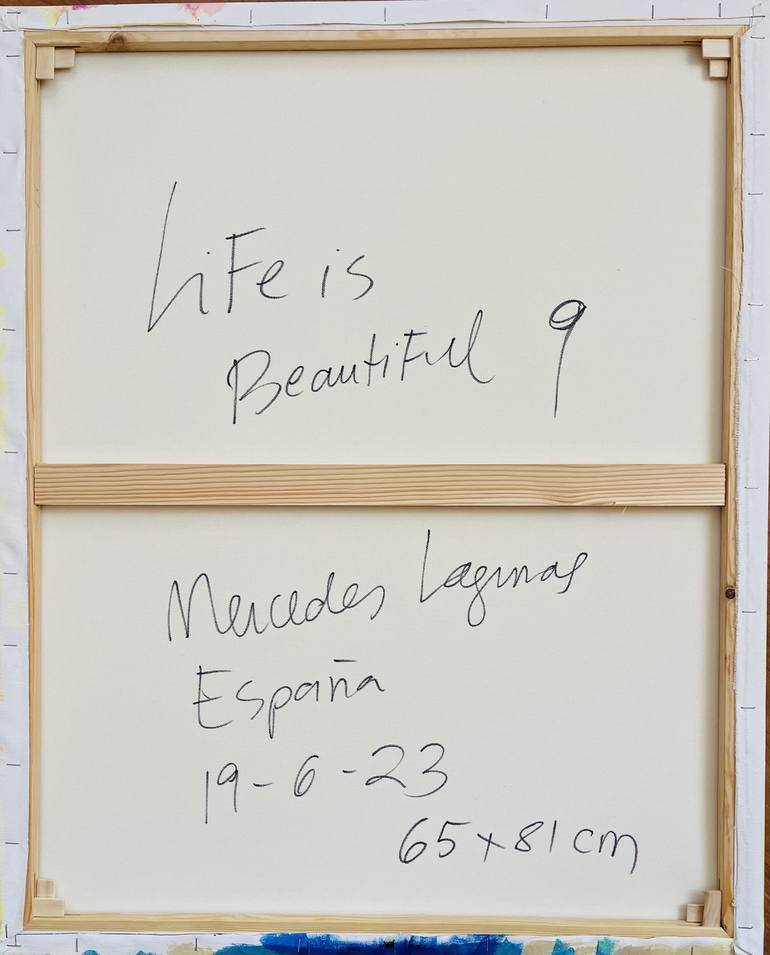 LiFe is
BeautiFul 9
Mercedes Lagunas
España
19-6-23
65x81 cm